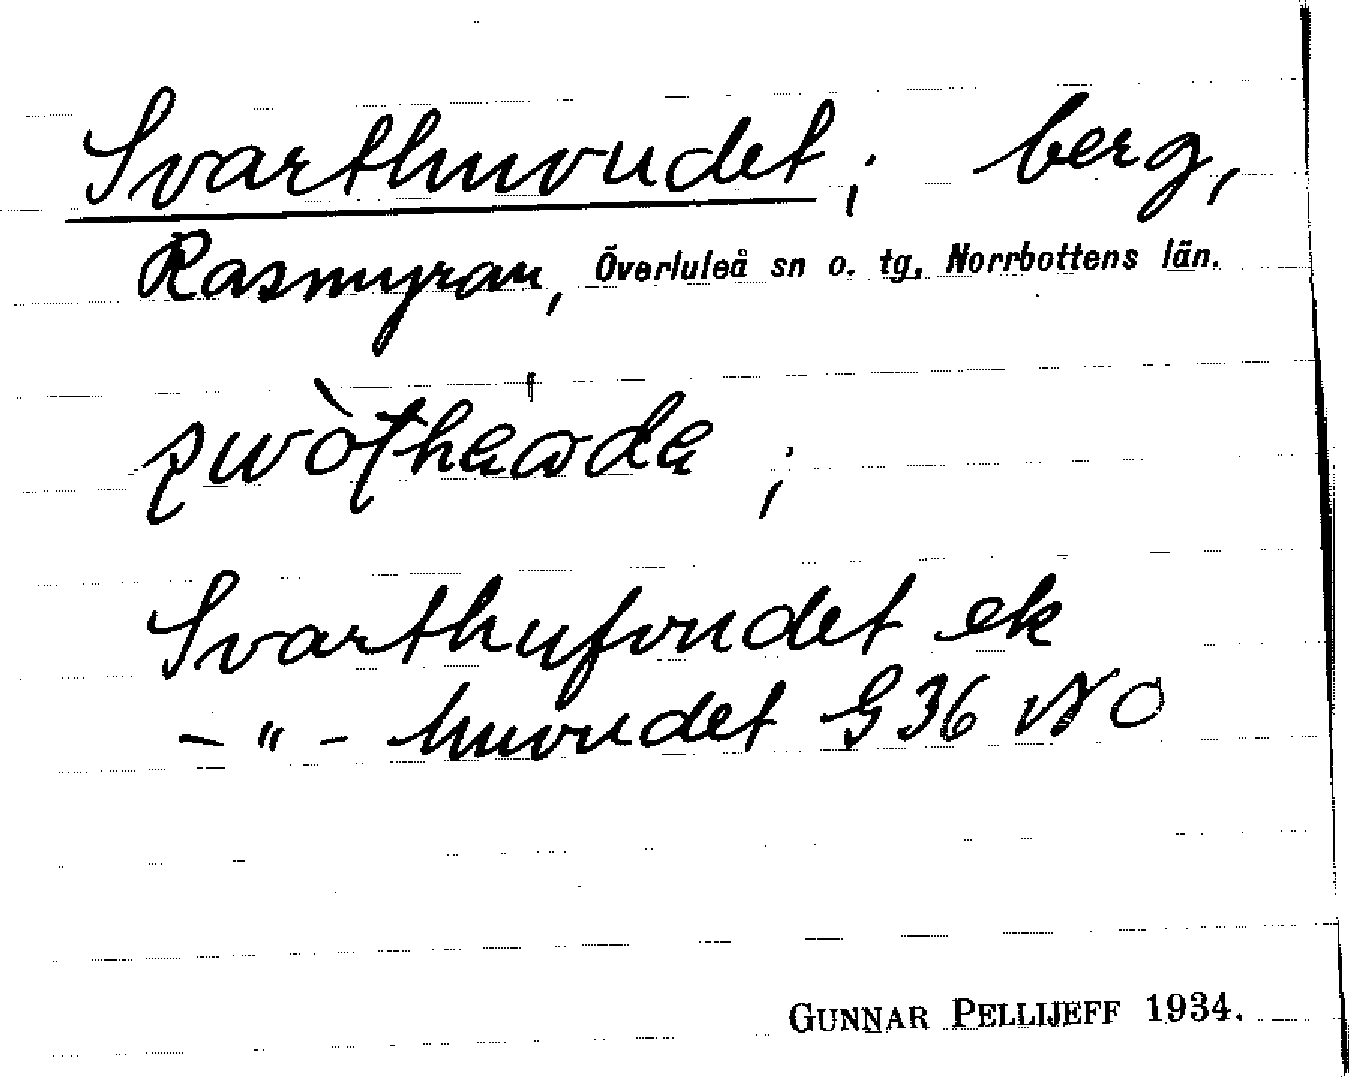 Svarthuvudet; berg,
Rasmyran, Överluleå sn o. tg, Norrbottens län.
Svarthufvudet ek
–"– huvudet G 36 NO
GUNNAR PELLIJEFF 1934.